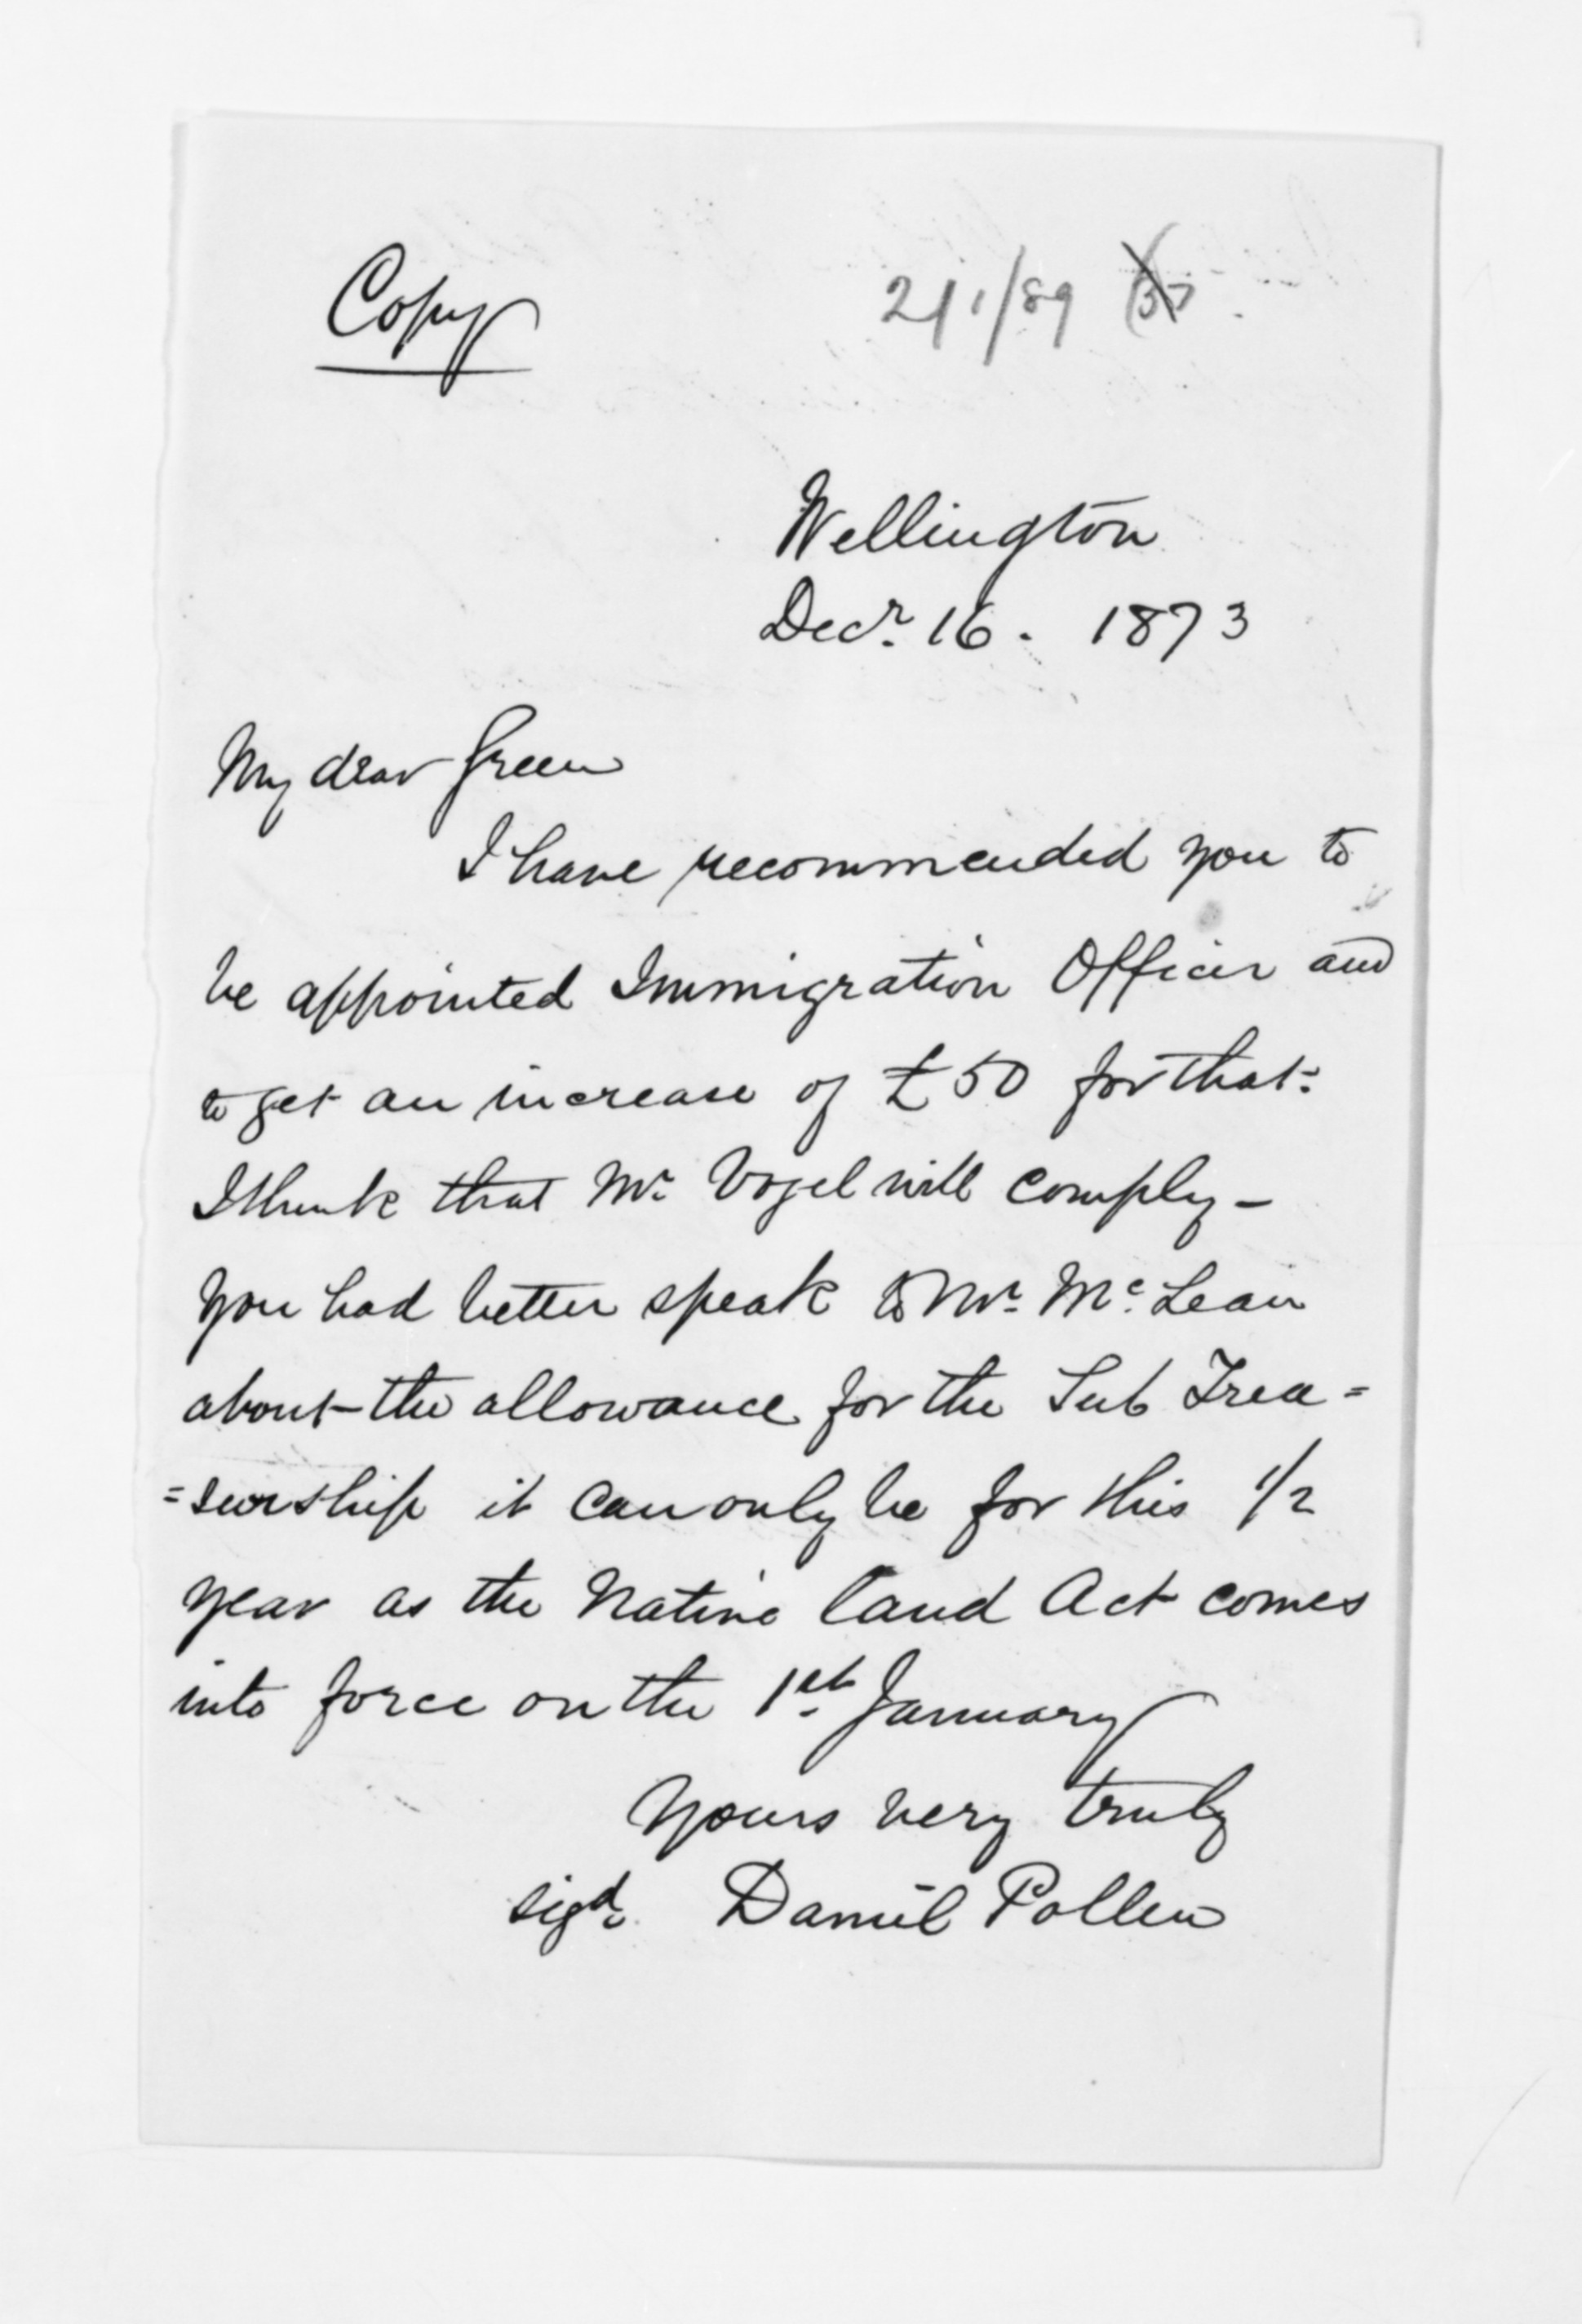 Copy
21/1/89
Wellington
Decr. 16. 1873
My dear Green
I have recommended you to
be appointed Immigration Officer and
to get an increase of £50 for that:
I think that Mr. Vogel will comply -
You had better speak to Mr. McLean
about the allowance for the Sub Trea=
=surship it can only be for this 1/2
year as the Native land Act comes
into force on the 1st. January
Yours very truly
sigd. Daniel Pollen